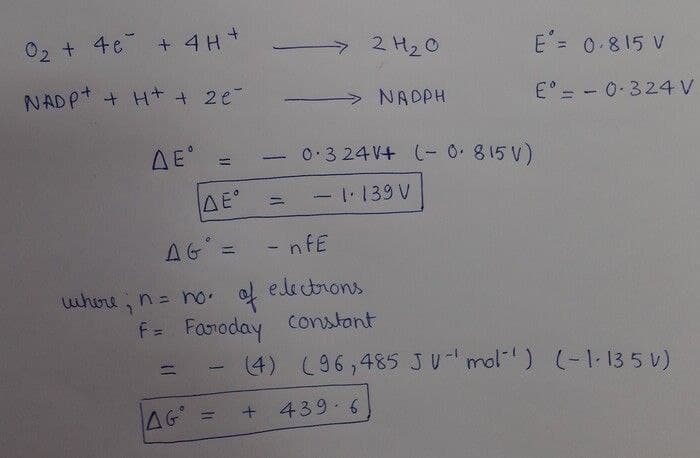 O₂ + 4e⁻ + 4H⁺ ⟶ 2H₂O E° = 0.815 V
NADP⁺ + H⁺ + 2e⁻ ⟶ NADPH E° = - 0.324 V
ΔE° = - 0.324V+ (- 0.815V)
ΔE° = - 1.139 V
ΔG° = - nfE
where; n = no. of electrons
F = Faroday constant
= - (4) (96,485 J V⁻¹ mol⁻¹) (-1.135 V)
ΔG° = + 439.6